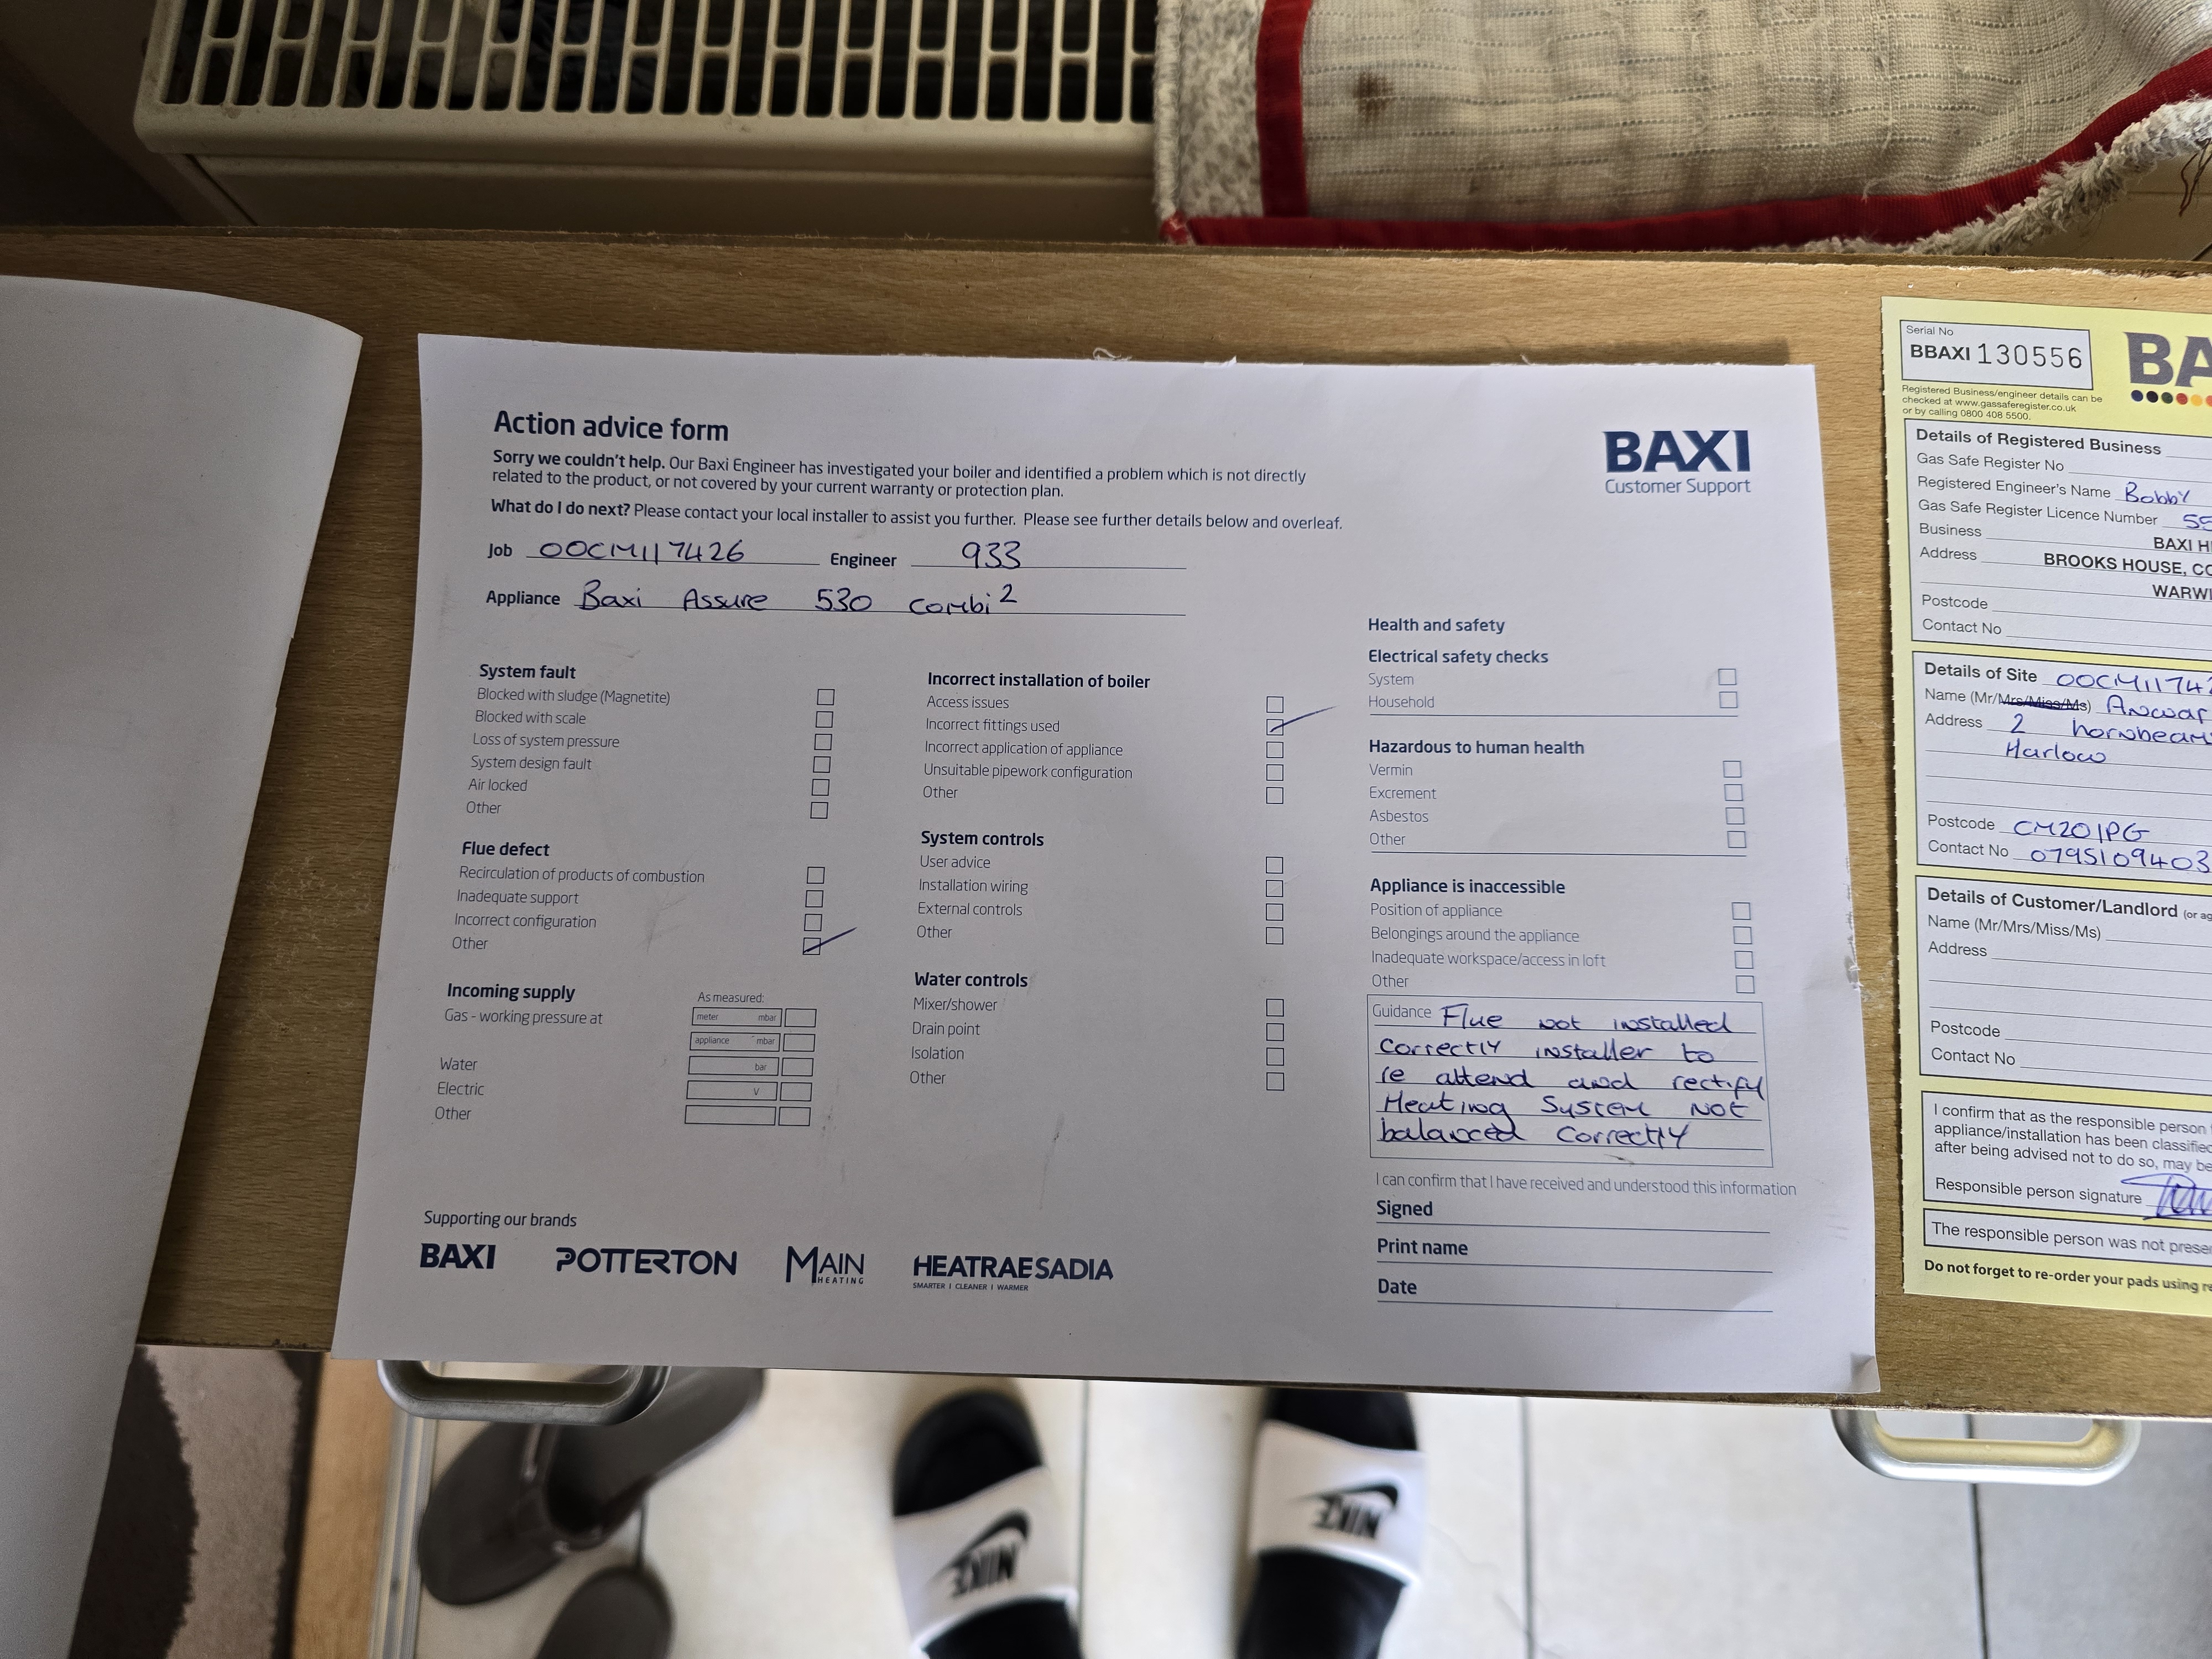 Action advice form
BAXI
Customer Support
Sorry we couldn't help. Our Baxi Engineer has investigated your boiler and identified a problem which is not directly
related to the product, or not covered by your current warranty or protection plan.
What do I do next? Please contact your local installer to assist you further. Please see further details below and overleaf.
Job 00CM117426 Engineer 933
Appliance Baxi Assure 530 combi 2
System fault
Blocked with sludge (Magnetite)
Blocked with scale
Loss of system pressure
System design fault
Air locked
Other
Flue defect
Recirculation of products of combustion
Inadequate support
Incorrect configuration
Other
Incoming supply
As measured:
Gas - working pressure at
meter mbar
appliance mbar
Water
bar
Electric
V
Other
Incorrect installation of boiler
Access issues
Incorrect fittings used
Incorrect application of appliance
Unsuitable pipework configuration
Other
System controls
User advice
Installation wiring
External controls
Other
Water controls
Mixer/shower
Drain point
Isolation
Other
Health and safety
Electrical safety checks
System
Household
Hazardous to human health
Vermin
Excrement
Asbestos
Other
Appliance is inaccessible
Position of appliance
Belongings around the appliance
Inadequate workspace/access in loft
Other
Guidance Flue not installed
correctly installer to
re attend and rectify
Heating System not
balanced correctly
I can confirm that I have received and understood this information
Signed
Print name
Date
Supporting our brands
BAXI
POTTERTON
MAIN
HEATING
HEATRAE SADIA
SMARTER | CLEANER | WARMER
Serial No
BBAXI 130556
BA
Registered Business/engineer details can be
checked at www.gassaferegister.co.uk
or by calling 0800 408 5500.
Details of Registered Business
Gas Safe Register No
Registered Engineer's Name Bobby
Gas Safe Register Licence Number 55
Business BAXI H
Address BROOKS HOUSE, CO
WARWI
Postcode
Contact No
Details of Site 00CM11742
Name (Mr/Mrs/Miss/Ms) Anwar
Address 2 hornbeam
Harlow
Postcode CM201PG
Contact No 0795109403
Details of Customer/Landlord (or ag
Name (Mr/Mrs/Miss/Ms)
Address
Postcode
Contact No
I confirm that as the responsible person
appliance/installation has been classified
after being advised not to do so, may be
Responsible person signature
The responsible person was not prese
Do not forget to re-order your pads using re
NIKE
NIKE